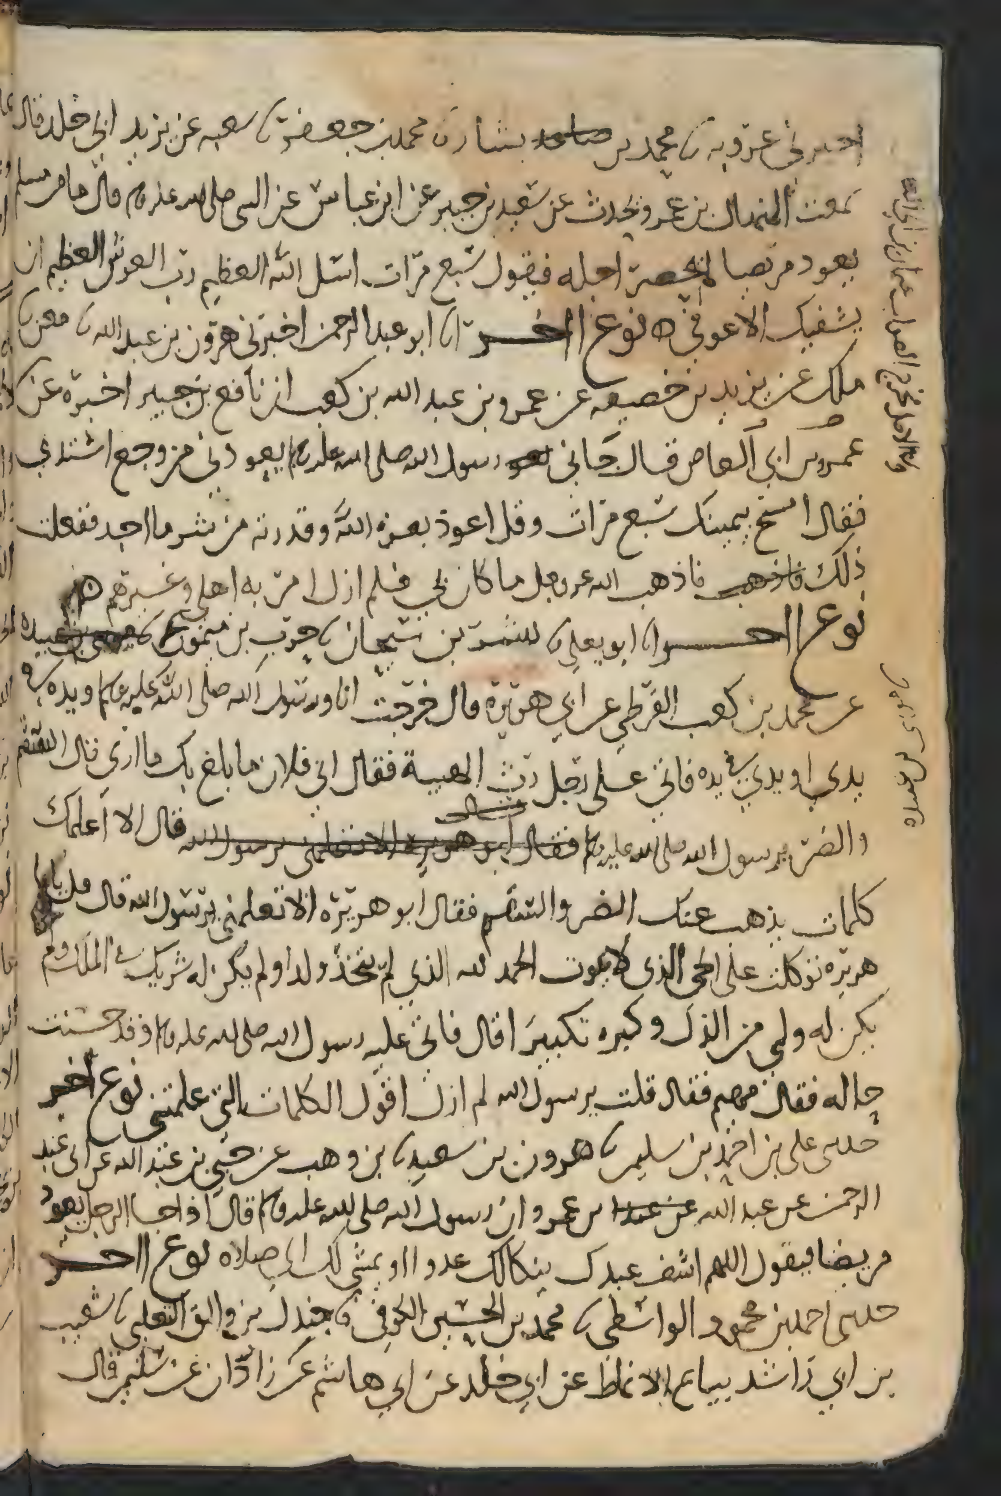 اخبرني عروبه ثنا محمد بن بشار ثنا محمد بن جعفر ثنا شعبه عن يزيد ابي خلد قال
سمعت المنهال بن عمرو يحدث عن سعيد بن جبير عن ابن عباس عن النبي صلى الله عليه وسلم قال ما من مسلم
يعود مريضا لم يحضر اجله فيقول سبع مرات اسئل الله العظيم رب العرش العظيم ان
يشفيك الا عوفي ه نوع اخر انا ابو عبد الرحمن اخبرني هرون بن عبد الله ثنا معن ثنا
ملك عن يزيد بن خصيفه عن عمرو بن عبد الله بن كعب ان نافع بن جبير اخبره عن
عمرو بن ابي العاص قال جاني رسول الله صلى الله عليه وسلم يعودني من وجع اشتد بي
فقال امسح بيمينك سبع مرات وقل اعوذ بعزة الله وقدرته من شر ما اجد ففعلت
ذلك فاذهب فاذهب الله عز وجل ما كان بي فلم ازل امر به اهلي وغيرهم
نوع اخر انا ابو يعلى ثنا بن شيحان ثنا حرب بن ميمون ثنا عبيده
عن محمد بن كعب القرظي عن ابي هريرة قال خرجت انا ورسول الله صلى الله عليه وسلم ويده في
يدي او يدي في يده فاتى على رجل رث الهيية فقال اي فلان ما بلغ بك ما ارى قال السقم
والضر يرسول الله صلى الله عليه وسلم فقال ابو هريرة الا تعلمني يرسول الله قال الا اعلمك
كلمات يذهب عنك الضر والسقم فقال ابو هريرة الا تعلمني يرسول الله قال قل يابا
هريره توكلت على الحي الذي لا يموت الحمد لله الذي لم يتخذ ولدا ولم يكن له شريك في الملك ولم
يكن له ولي من الذل وكبره تكبيرا قال فاتى عليه رسول الله صلى الله عليه وسلم وقد حسنت
حاله فقال مهيم فقال قلت يرسول الله لم ازل اقول الكلمات التي علمتني نوع اخر
حدثني علي بن احمد بن سليمن ثنا هرون بن سعيد ثنا بن وهب عن حيي بن عبد الله عن ابي عبد
الرحمن عن عبد الله بن عمرو ان رسول الله صلى الله عليه وسلم قال اذا جا الرجل يعود
مريضا فيقول اللهم اشف عبدك ينكا لك عدوا او يمشي لك الى صلاه نوع اخر
حدثني احمد بن محمود الواسطي ثنا محمد بن الحسين الكوفي ثنا جندل بن والق التغلبي ثنا شعيب
بن ابي راشد بياع الانماط عن ابي خلد عن ابي هاشم عن زاذان عن سلمن قال